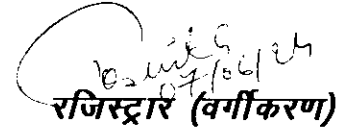 07/06/24
रजिस्ट्रार (वर्गीकरण)